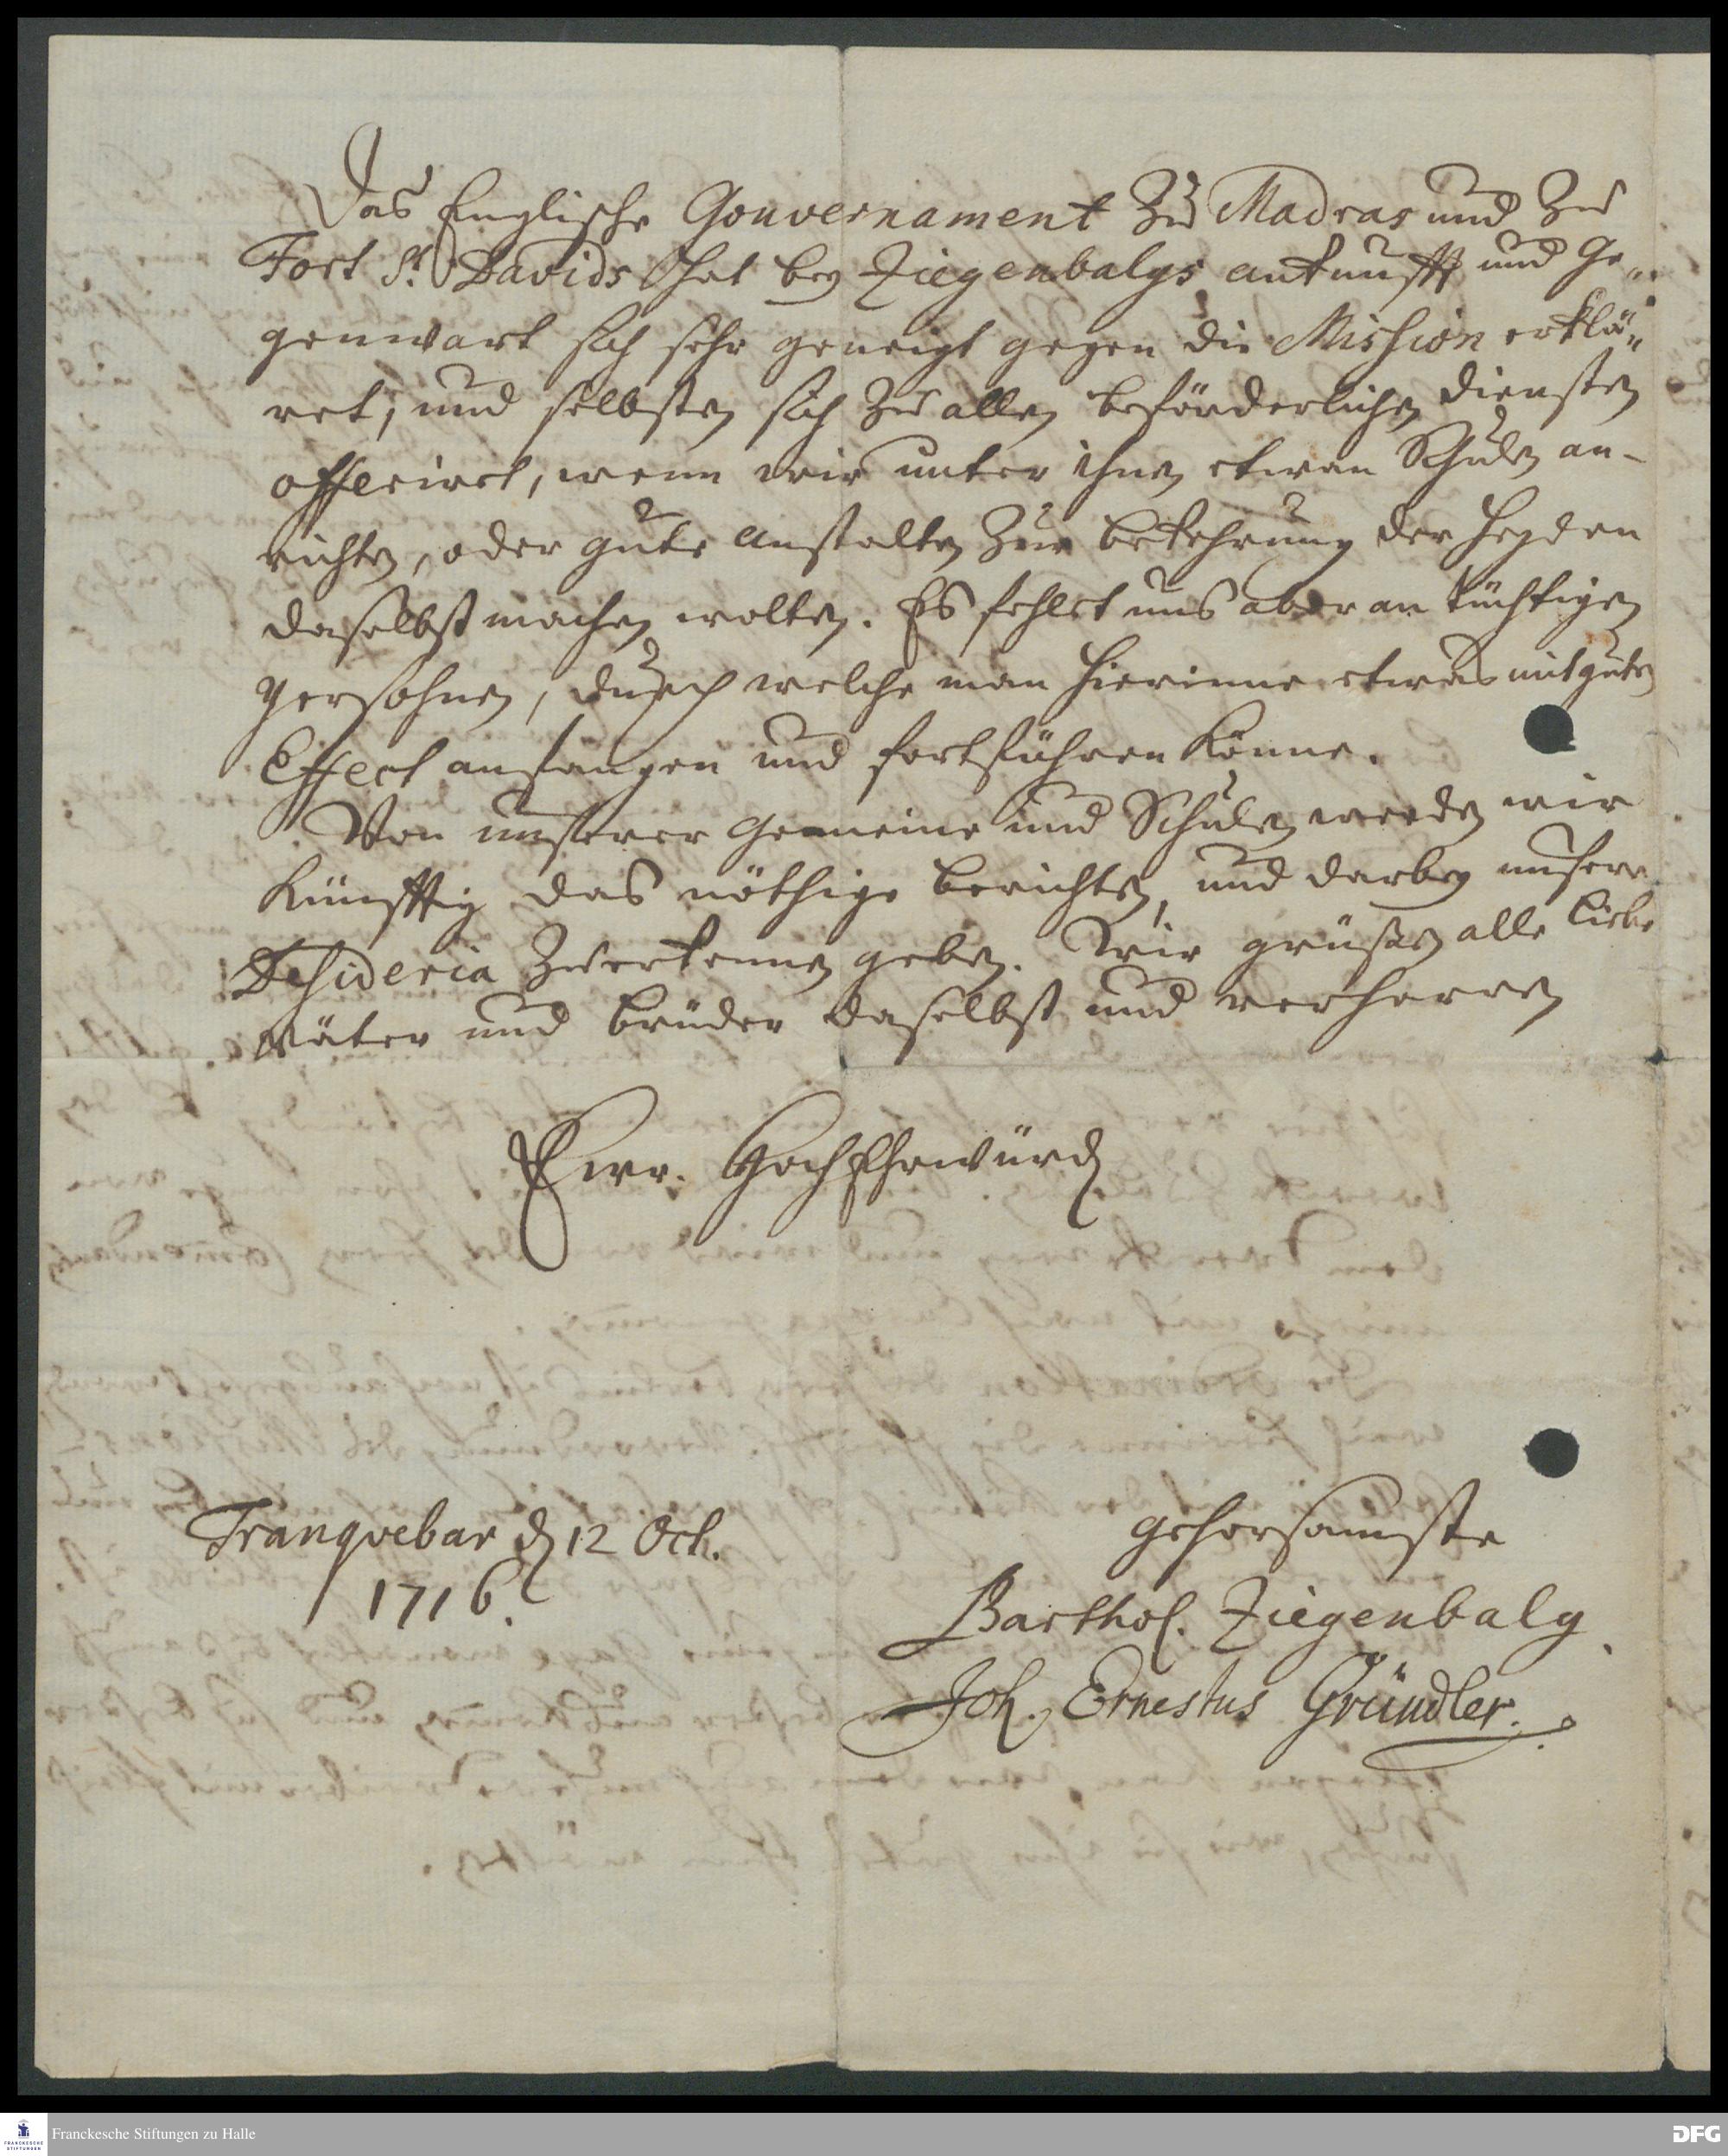 Das Englische Gouvernament zu Madras und zu
Fort St. Davids hat bey Ziegenbalgs ankunfft und Ge„
genwart sich sehr geneigt gegen die Mission erklä„
ret, und selbsten sich zu allen beförderlichen diensten
offeriret, wenn wir unter ihnen etwan Schulen an-
richten, oder gute anstalten zur bekehrung der Heyden
daselbst machen wolten. Es fehlet uns aber an tüchtigen
persohnen, durch welche man hierinne etwas mit guten
Effect anfangen und fortführen könne.
Von unserer Gemeine und Schulen werden wir
künfftig das nöthige berichten, und darbey unsere
Desideria zuerkennen geben. Wir grüßen alle liebe
väter und brüder daselbst und verharren
Ewr. HochEhrwürd
Tranquebar den 12 Oct.
1716.
gehorsamste
Barthol. Ziegenbalg
Joh. Ernestus Gründler.
Franckesche Stiftungen zu Halle
FRANCKESCHE
STIFTUNGEN
DFG